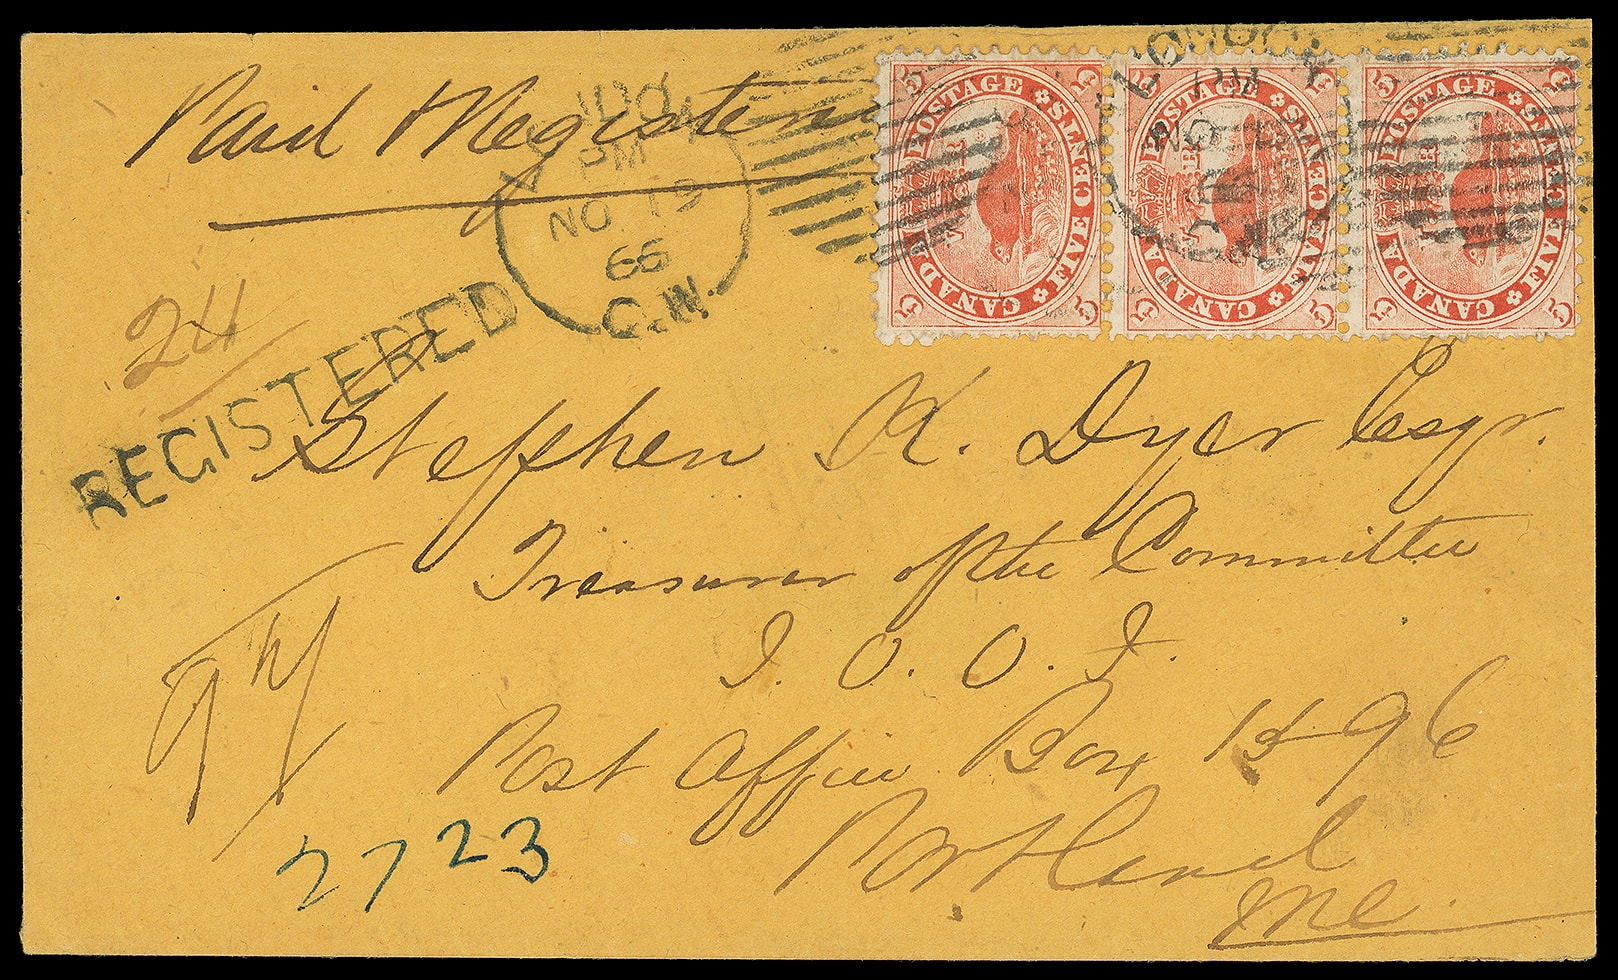 Paid Register
PM
NO 19
66
C.W.
5 5
CANADA POSTAGE
FIVE CENTS
5 5
5 5
CANADA POSTAGE
FIVE CENTS
5 5
5 5
CANADA POSTAGE
FIVE CENTS
5 5
PM
NO
66
24
REGISTERED
Stephen K. Dyer Esqr.
Treasurer of the Committee
I. O. O. F.
Post Office Box 1596
Portland
Me.
2723